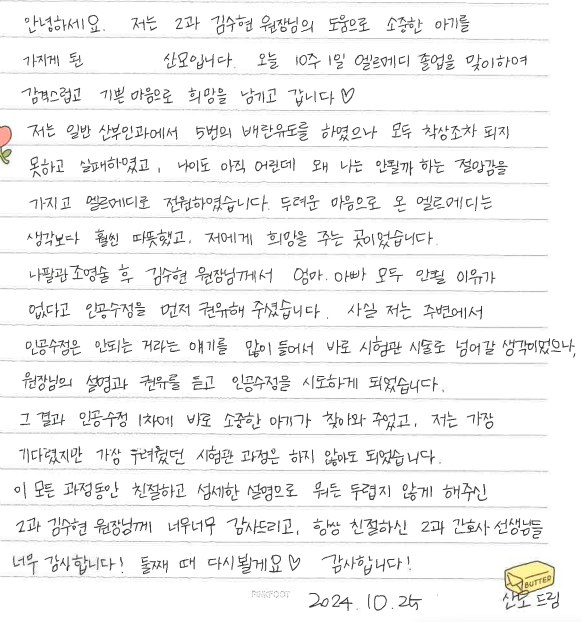 안녕하세요. 저는 2과 김수현 원장님의 도움으로 소중한 아기를
가지게 된 산모입니다. 오늘 10주 1일 엘르메디 졸업을 맞이하여
감격스럽고 기쁜 마음으로 희망을 남기고 갑니다♡
저는 일반 산부인과에서 5번의 배란유도를 하였으나 모두 착상조차 되지
못하고 실패하였고, 나이도 아직 어린데 왜 나는 안될까 하는 절망감을
가지고 엘르메디로 전원하였습니다. 두려운 마음으로 온 엘르메디는
생각보다 훨씬 따뜻했고, 저에게 희망을 주는 곳이었습니다.
나팔관조영술 후 김수현 원장님께서 엄마.아빠 모두 안될 이유가
없다고 인공수정을 먼저 권유해 주셨습니다. 사실 저는 주변에서
인공수정은 안되는 거라는 얘기를 많이 들어서 바로 시험관 시술로 넘어갈 생각이었으나,
원장님의 설명과 권유를 듣고 인공수정을 시도하게 되었습니다.
그 결과 인공수정 1차에 바로 소중한 아기가 찾아와 주었고, 저는 가장
기다렸지만 가장 두려웠던 시험관 과정은 하지 않아도 되었습니다.
이 모든 과정동안 친절하고 섬세한 설명으로 뭐든 두렵지 않게 해주신
2과 김수현 원장님께 너무너무 감사드리고, 항상 친절하신 2과 간호사 선생님들
너무 감사합니다! 둘째 때 다시뵐게요♡ 감사합니다!
BUTTER
2024.10.25 산모 드림